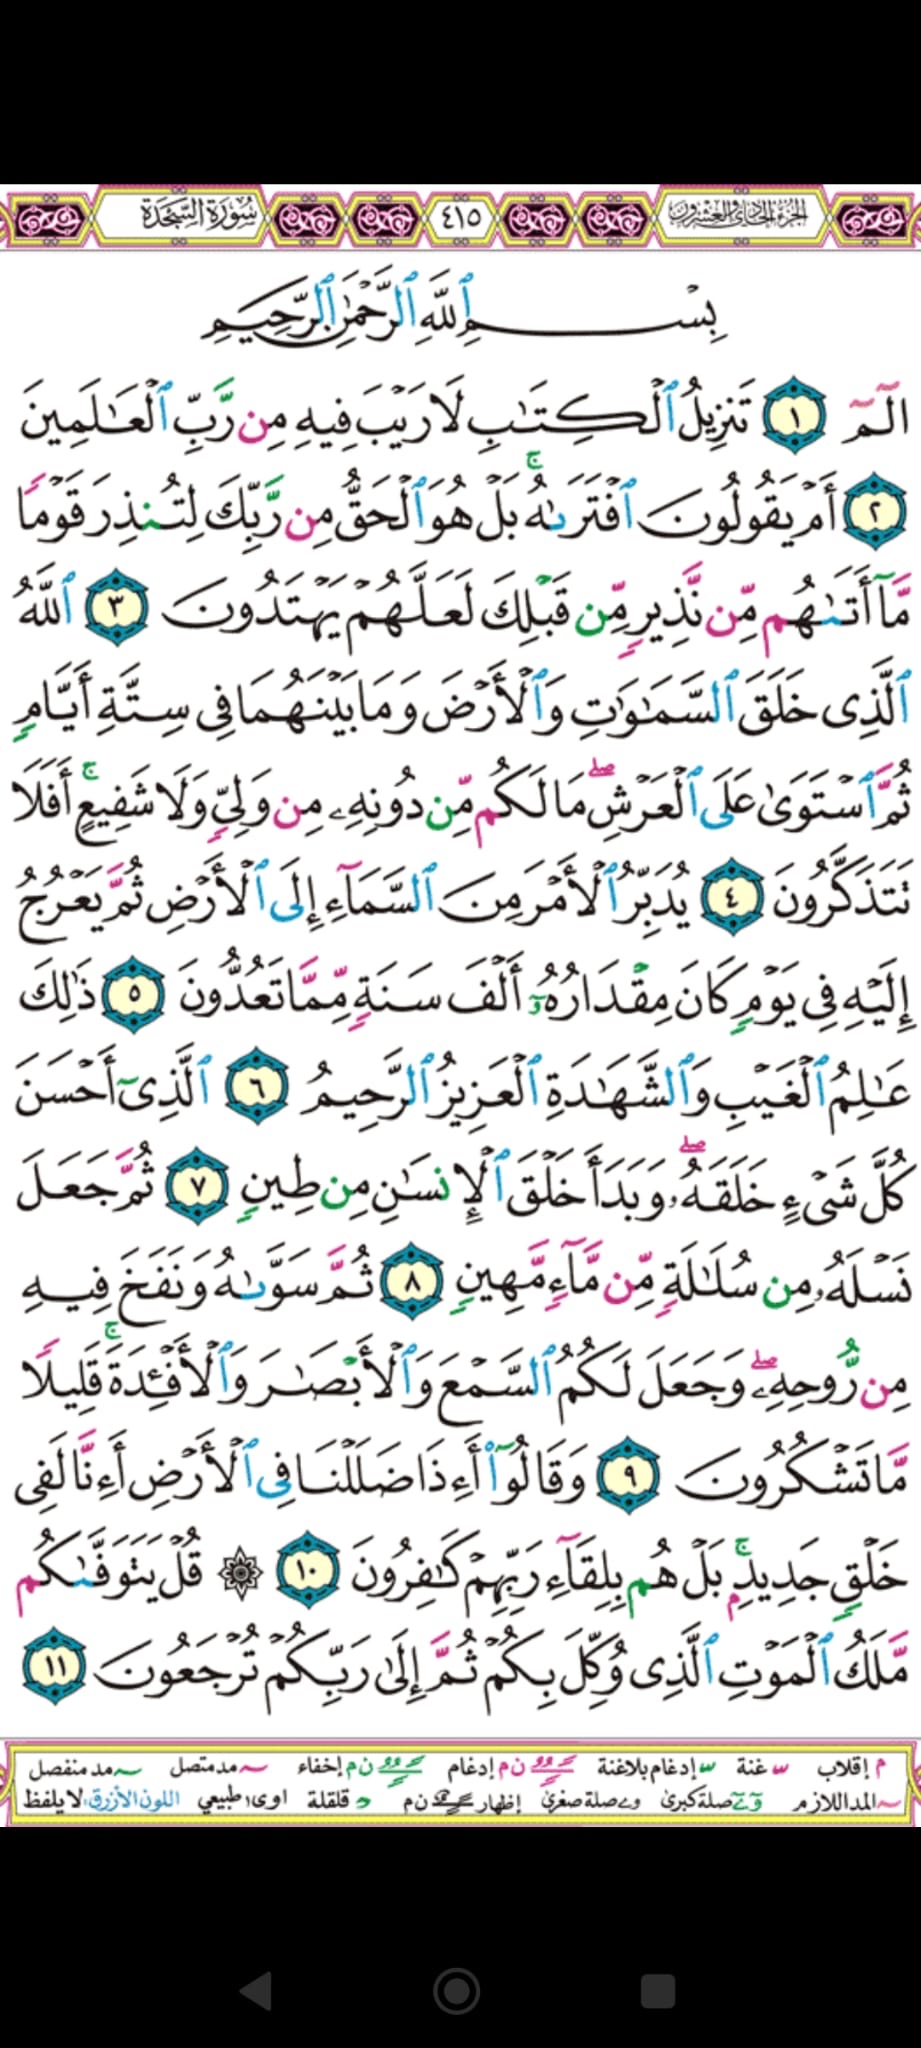 سُورَةُ السَّجْدَةِ ٤١٥ الجزء الحادي والعشرون
بِسْمِ ٱللَّهِ ٱلرَّحْمَٰنِ ٱلرَّحِيمِ
الٓمٓ ١ تَنزِيلُ ٱلْكِتَٰبِ لَا رَيْبَ فِيهِ مِن رَّبِّ ٱلْعَٰلَمِينَ
٢ أَمْ يَقُولُونَ ٱفْتَرَىٰهُ ۚ بَلْ هُوَ ٱلْحَقُّ مِن رَّبِّكَ لِتُنذِرَ قَوْمًا
مَّآ أَتَىٰهُم مِّن نَّذِيرٍ مِّن قَبْلِكَ لَعَلَّهُمْ يَهْتَدُونَ ٣ ٱللَّهُ
ٱلَّذِى خَلَقَ ٱلسَّمَٰوَٰتِ وَٱلْأَرْضَ وَمَا بَيْنَهُمَا فِى سِتَّةِ أَيَّامٍ
ثُمَّ ٱسْتَوَىٰ عَلَى ٱلْعَرْشِ ۖ مَا لَكُم مِّن دُونِهِۦ مِن وَلِىٍّ وَلَا شَفِيعٍ ۚ أَفَلَا
تَتَذَكَّرُونَ ٤ يُدَبِّرُ ٱلْأَمْرَ مِنَ ٱلسَّمَآءِ إِلَى ٱلْأَرْضِ ثُمَّ يَعْرُجُ
إِلَيْهِ فِى يَوْمٍ كَانَ مِقْدَارُهُۥٓ أَلْفَ سَنَةٍ مِّمَّا تَعُدُّونَ ٥ ذَٰلِكَ
عَٰلِمُ ٱلْغَيْبِ وَٱلشَّهَٰدَةِ ٱلْعَزِيزُ ٱلرَّحِيمُ ٦ ٱلَّذِىٓ أَحْسَنَ
كُلَّ شَىْءٍ خَلَقَهُۥ ۖ وَبَدَأَ خَلْقَ ٱلْإِنسَٰنِ مِن طِينٍ ٧ ثُمَّ جَعَلَ
نَسْلَهُۥ مِن سُلَٰلَةٍ مِّن مَّآءٍ مَّهِينٍ ٨ ثُمَّ سَوَّىٰهُ وَنَفَخَ فِيهِ
مِن رُّوحِهِۦ ۖ وَجَعَلَ لَكُمُ ٱلسَّمْعَ وَٱلْأَبْصَٰرَ وَٱلْأَفْـِٔدَةَ ۚ قَلِيلًا
مَّا تَشْكُرُونَ ٩ وَقَالُوٓا۟ أَءِذَا ضَلَلْنَا فِى ٱلْأَرْضِ أَءِنَّا لَفِى
خَلْقٍ جَدِيدٍۭ ۚ بَلْ هُم بِلِقَآءِ رَبِّهِمْ كَٰفِرُونَ ١٠ ۞ قُلْ يَتَوَفَّىٰكُم
مَّلَكُ ٱلْمَوْتِ ٱلَّذِى وُكِّلَ بِكُمْ ثُمَّ إِلَىٰ رَبِّكُمْ تُرْجَعُونَ ١١
م إقلاب غنة إدغام بلاغنة ن م إدغام ن م إخفاء مد متصل مد منفصل
المد اللازم صلة كبرى صلة صغرى إظهار ن م قلقلة اوى طبيعي اللون الأزرق لا يلفظ